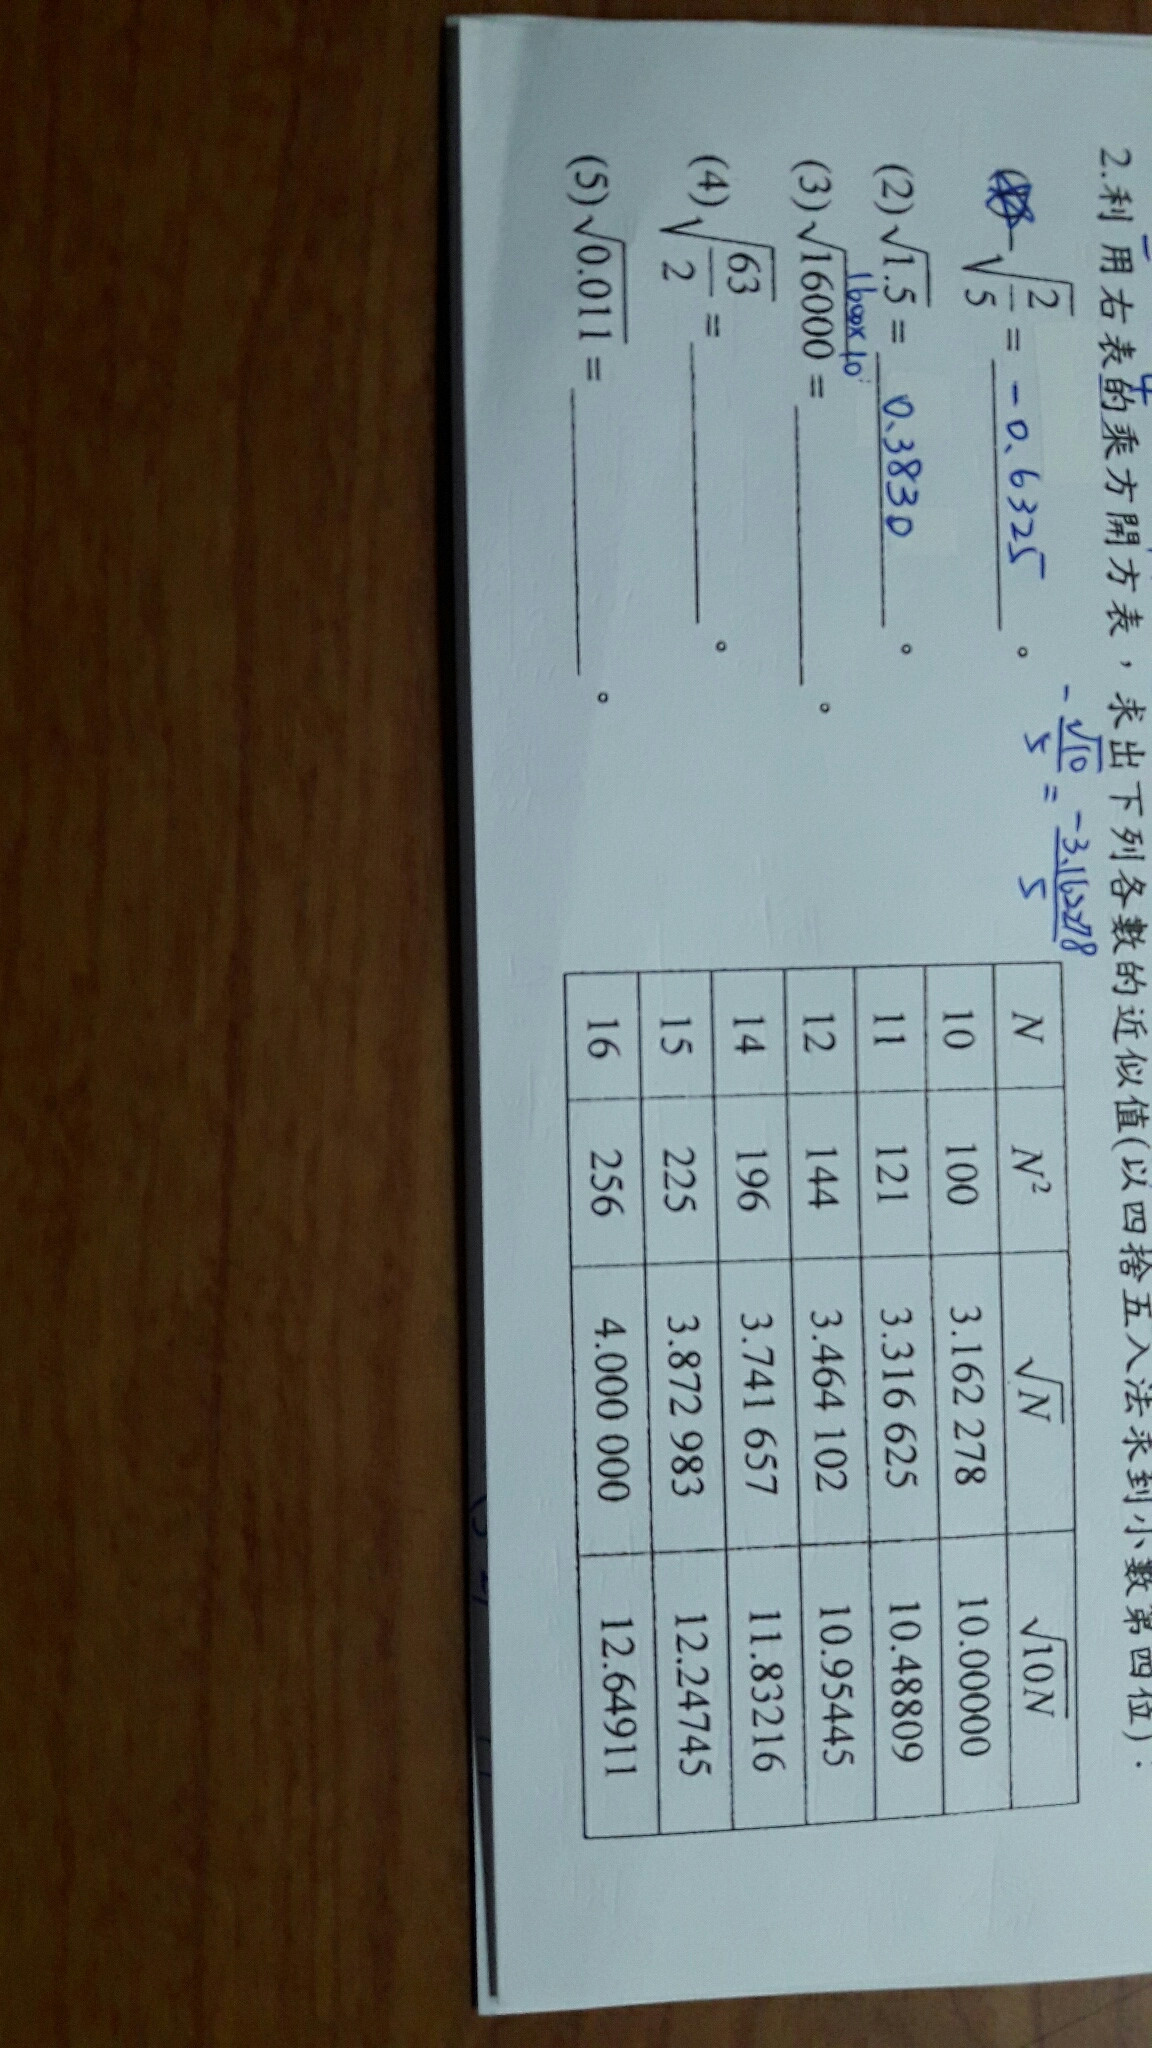 2.利用右表的乘方開方表，求出下列各數的近似值(以四捨五入法求到小數第四位)：
-√(2/5) = -0.6325 。
-√10/5 = -3.162278/5
(2)√1.5 = 0.3830 。
1600×10
(3)√16000 = 。
(4)√(63/2) = 。
(5)√0.011 = 。
N N² √N √10N
10 100 3.162 278 10.00000
11 121 3.316 625 10.48809
12 144 3.464 102 10.95445
14 196 3.741 657 11.83216
15 225 3.872 983 12.24745
16 256 4.000 000 12.64911